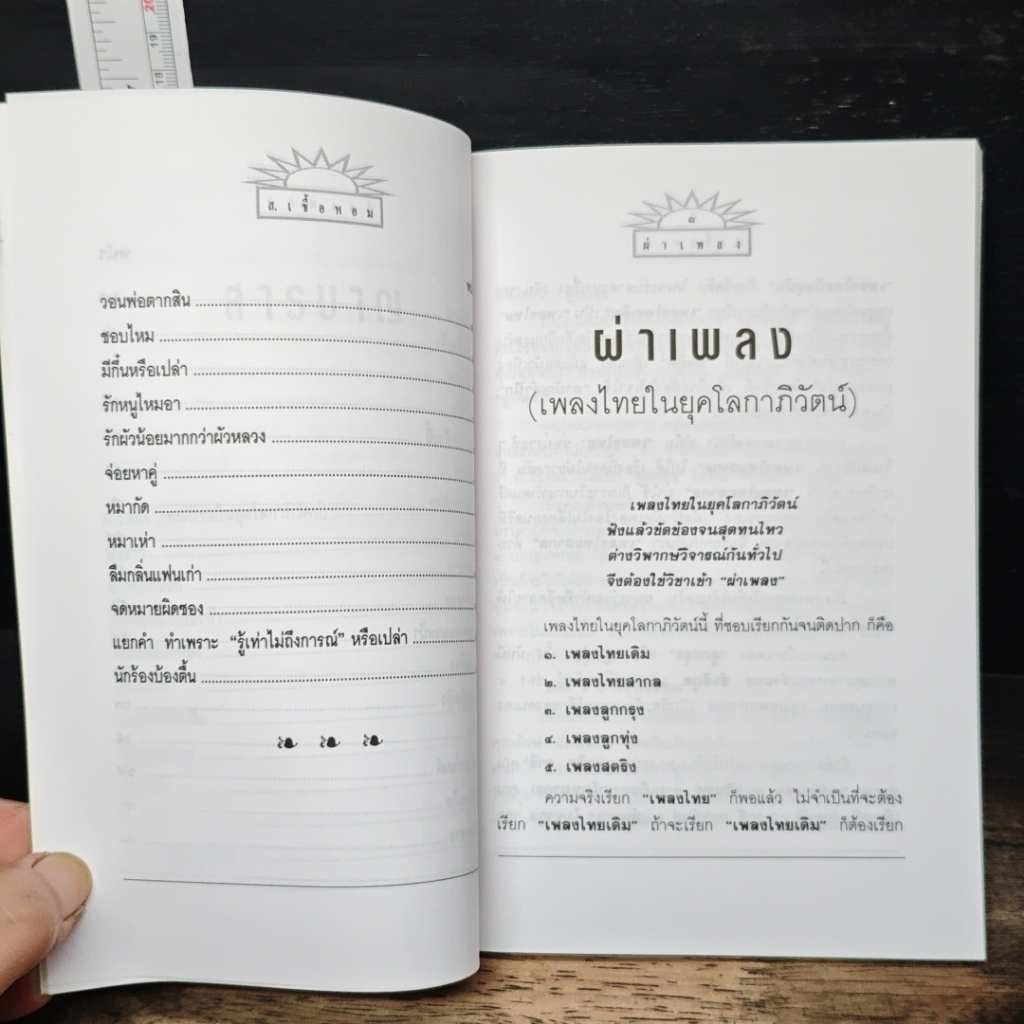 ส. เชื้อหอม
วอนพ่อตากสิน
ชอบไหม
มีกึ๋นหรือเปล่า
รักหนูไหมอา
รักผัวน้อยมากกว่าผัวหลวง
จ่อยหาคู่
หมากัด
หมาเห่า
ลืมกลิ่นแฟนเก่า
จดหมายผิดซอง
แยกคำ ทำเพราะ “รู้เท่าไม่ถึงการณ์” หรือเปล่า
นักร้องบ้องตื้น
๘
ผ่าเพลง
ผ่าเพลง
(เพลงไทยในยุคโลกาภิวัตน์)
เพลงไทยในยุคโลกาภิวัตน์
ฟังแล้วขัดข้องจนสุดทนไหว
ต่างวิพากษ์วิจารณ์กันทั่วไป
จึงต้องใช้วิชาเข้า “ผ่าเพลง”
เพลงไทยในยุคโลกาภิวัตน์นี้ ที่ชอบเรียกกันจนติดปาก ก็คือ
๑. เพลงไทยเดิม
๒. เพลงไทยสากล
๓. เพลงลูกกรุง
๔. เพลงลูกทุ่ง
๕. เพลงสตริง
ความจริงเรียก “เพลงไทย” ก็พอแล้ว ไม่จำเป็นที่จะต้อง
เรียก “เพลงไทยเดิม” ถ้าจะเรียก “เพลงไทยเดิม” ก็ต้องเรียก
20
19
18